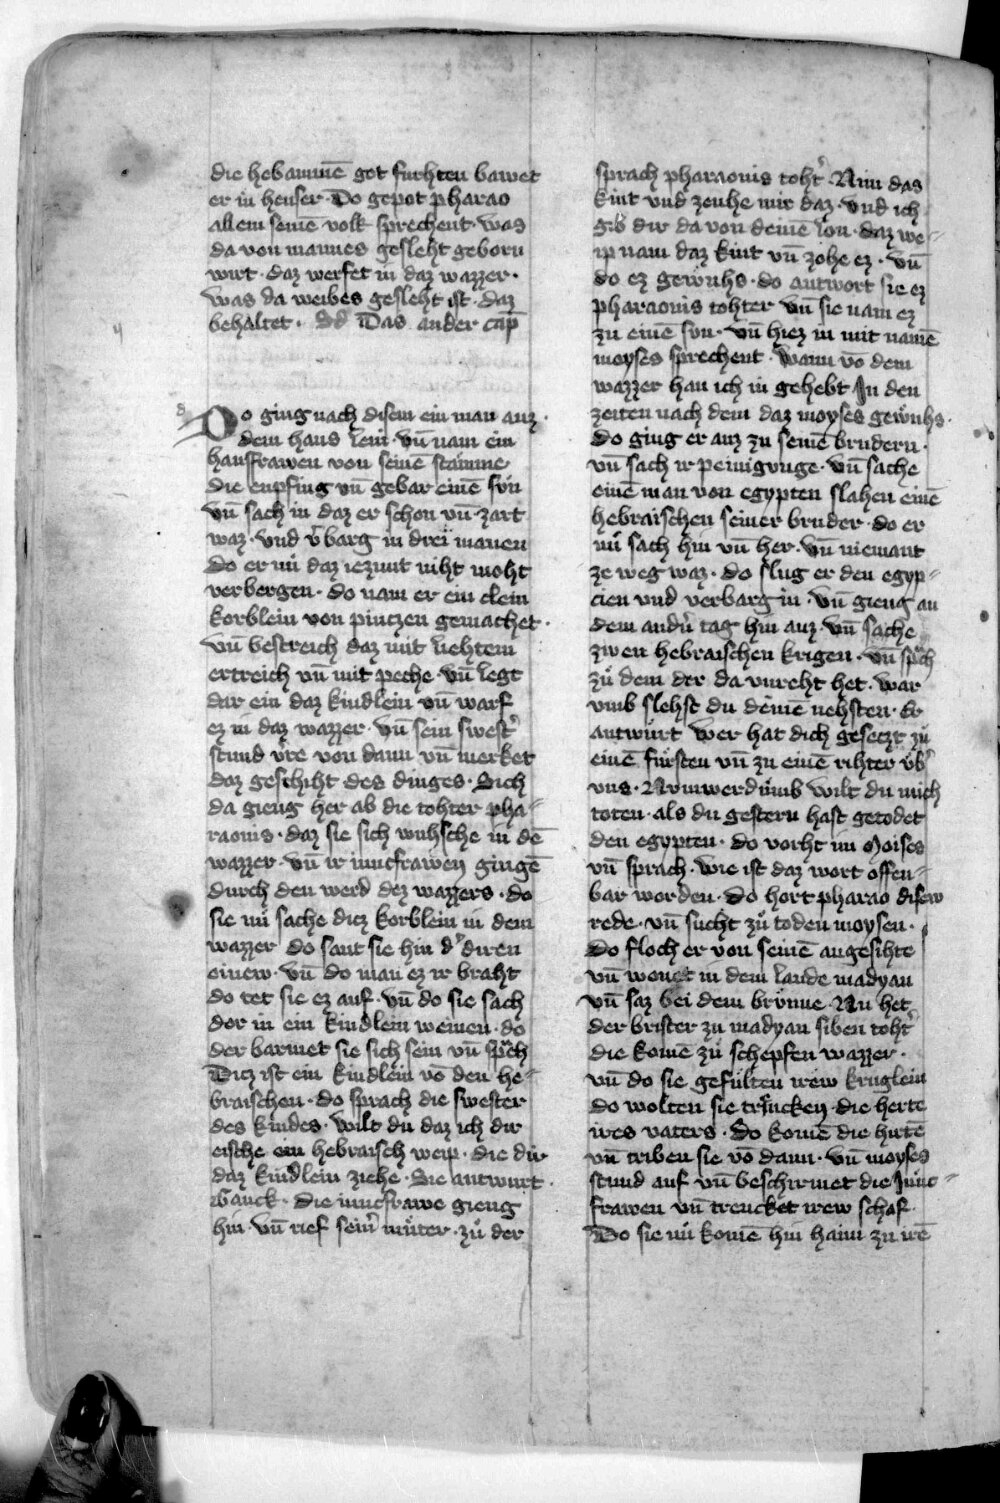 die hebammē got furhten bawet
er in heuser · Do gepot pharao
allem seinē volk sprechent · was
da von mannes gesleht geborn
wirt · daz werfet in daz wazzer ·
was da weibes gesleht ist · daz
behaltet · Das ander cap̄
Do ging nach disem ein man auz
dem haus leui · vn̄ nam ein
hausfrawen von seinē stamme
die enpfing vn̄ gebar einē sun
vn̄ sach in daz er schon vn̄ zart
waz · vnd v̓barg in drei manen
do er nů daz iezunt niht moht
verbergen · do nam er ein clein
korblein von pintzen gemachet ·
vn̄ bestreich daz mit liehtem
ertreich vn̄ mit peche · vn̄ legt
dar ein daz kindlein vn̄ warf
ez in daz wazzer · vn̄ sein swest̓
stund v̓re von dann vn̄ merket
daz geschiht des dinges · Sich
da gieng her ab die tohter pha-
raonis · daz sie sich wuhsche in dē
wazzer · vn̄ ir iuncfrawen gingē
durch den werd dez wazzers · do
sie nů sache dicz korblein in dem
wazzer do sant sie hin d̓ diren
einew · vn̄ do man ez ir braht
do tet sie ez auf · vn̄ do sie sach
dor in ein kindlein weinen · do
der barmet sie sich sein vn̄ sp̄ch
Dicz ist ein kindlein vō den he-
braischen · do sprach die swester
des kindes · wilt du daz ich dir
eische ein hebraisch weip · die dir
daz kindlein ziehe · Sie antwurt ·
Ganck · die iuncfrawe gieng
hin · vn̄ rief sein̓ můter · zů der
sprach pharaonis toht̓ · Nim das
kint vnd zeuhe mir daz · vnd ich
gib dir da von deinē lon · daz we-
ip nam daz kint vn̄ zohe ez · vn̄
do ez gewuhs · do antwort sie ez
pharaonis tohter vn̄ sie nam ez
zu einē sun · vn̄ hiez in mit namē
moyses sprechent · wann vō dem
wazzer han ich in gehebt In den
zeiten nach dem daz moyses gewuhs ·
do ging er auz zu seinē brudern ·
vn̄ sach ir peinigvnge · vn̄ sache
einē man von egypten slahen einē
hebraischen seiner bruder · do er
nů sach hin vn̄ her · vn̄ niemant
ze weg waz · do slug er den egyp-
cien vnd verbarg in · vn̄ gieng an
dem and̓n tag hin auz · vn̄ sache
zwen hebraischen krigen · vn̄ sp̄ch
zů dem der da vnreht het · war
vmb slehst du deinē nehsten · Er
antwůrt wer hat dich gesetzt zů
einē fůrsten vn̄ zu einē rihter v̓b̓
vns · wilt du mich
toten · als du gestern hast getodet
den egypten · do vorht im Moises
vn̄ sprach · wie ist daz wort offen-
bar worden · Do hort pharao disew
rede · vn̄ sucht zů toden moysen ·
Do floch er von seinē angesihte
vn̄ wonet in dem lande madyan
vn̄ saz bei dem brunne · Nu het
der brister zu madyan siben toht̓
die komē zů schepfen wazzer ·
vn̄ do sie gefůlten irew kruglein
do wolten sie tråncken die herte
ires vaters · Do komē die hirtē
vn̄ triben sie vō dann · vn̄ moyses
stund auf vn̄ beschirmet die Junc-
frawen vn̄ trencket irew schaf ·
Do sie nů komē hin haim zu irē